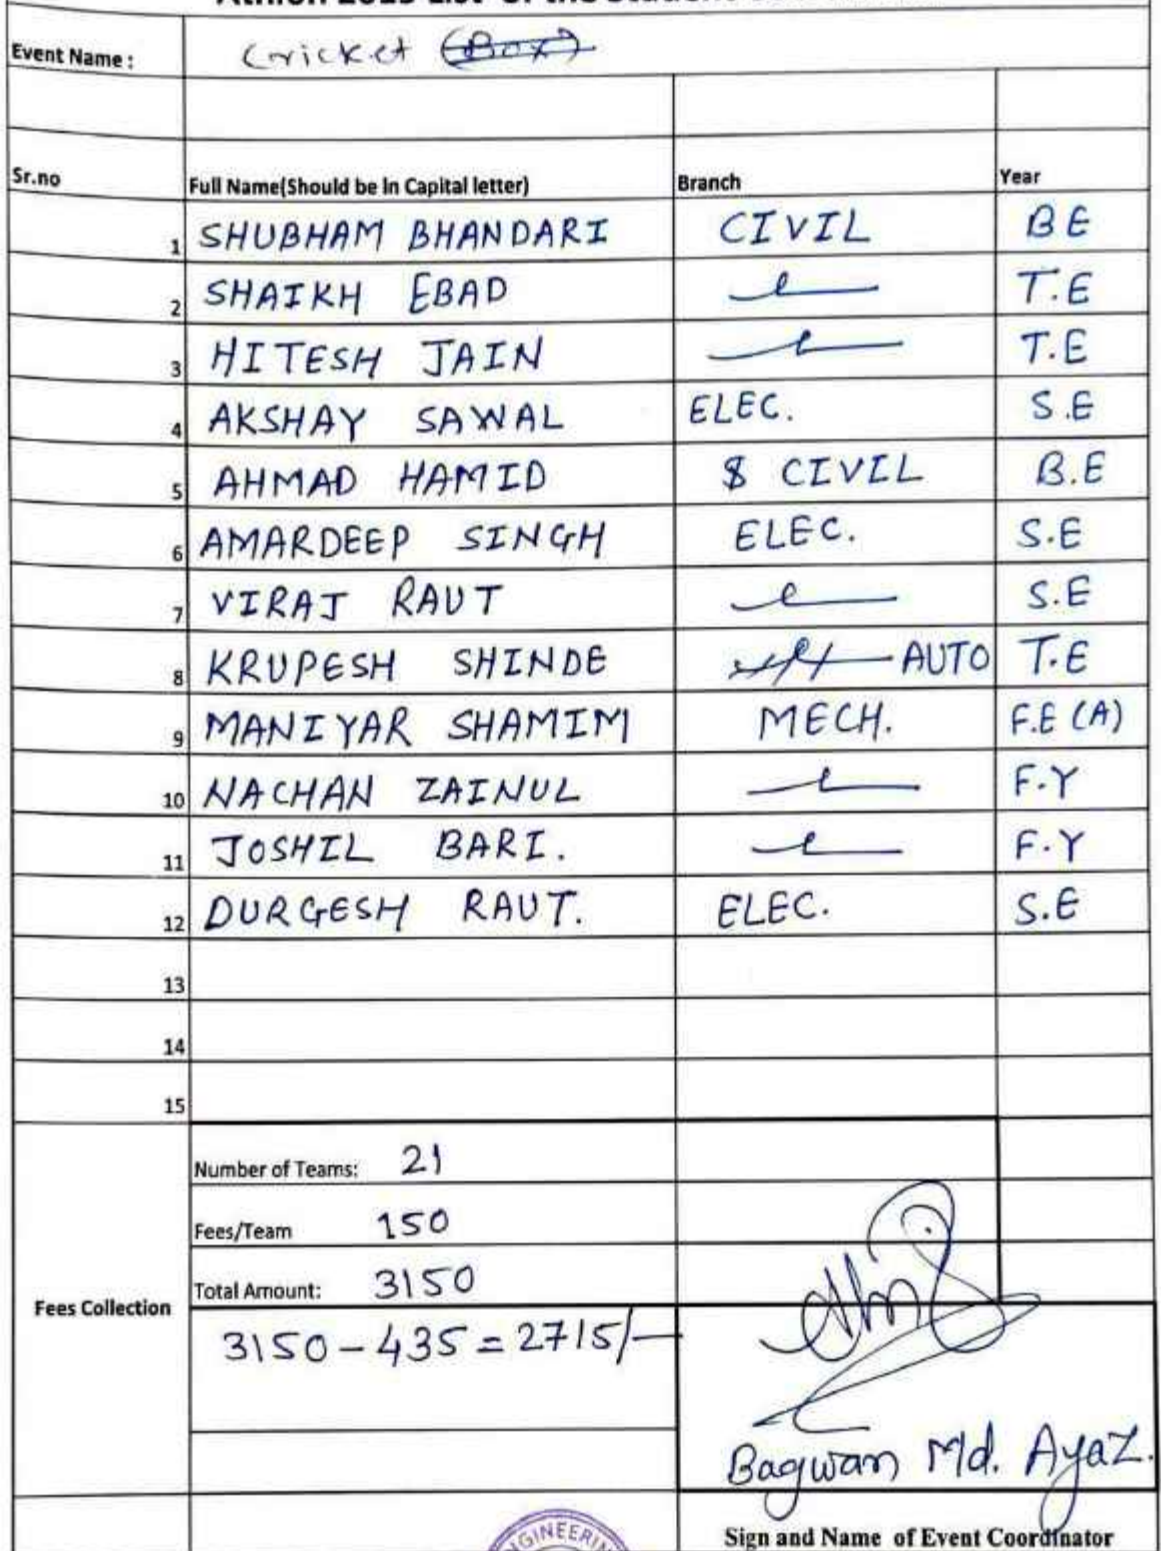 Event Name : Cricket (Box)
Sr.no Full Name(Should be In Capital letter) Branch Year
1 SHUBHAM BHANDARI CIVIL BE
2 SHAIKH EBAD T.E
3 HITESH JAIN T.E
4 AKSHAY SAWAL ELEC. S.E
5 AHMAD HAMID CIVIL B.E
6 AMARDEEP SINGH ELEC. S.E
7 VIRAJ RAUT S.E
8 KRUPESH SHINDE AUTO T.E
9 MANIYAR SHAMIM MECH. F.E (A)
10 NACHAN ZAINUL F.Y
11 JOSHIL BARI. F.Y
12 DURGESH RAUT. ELEC. S.E
13
14
15
Number of Teams: 21
Fees/Team 150
Total Amount: 3150
Fees Collection
3150 - 435 = 2715/-
Bagwan Md. Ayaz.
Sign and Name of Event Coordinator